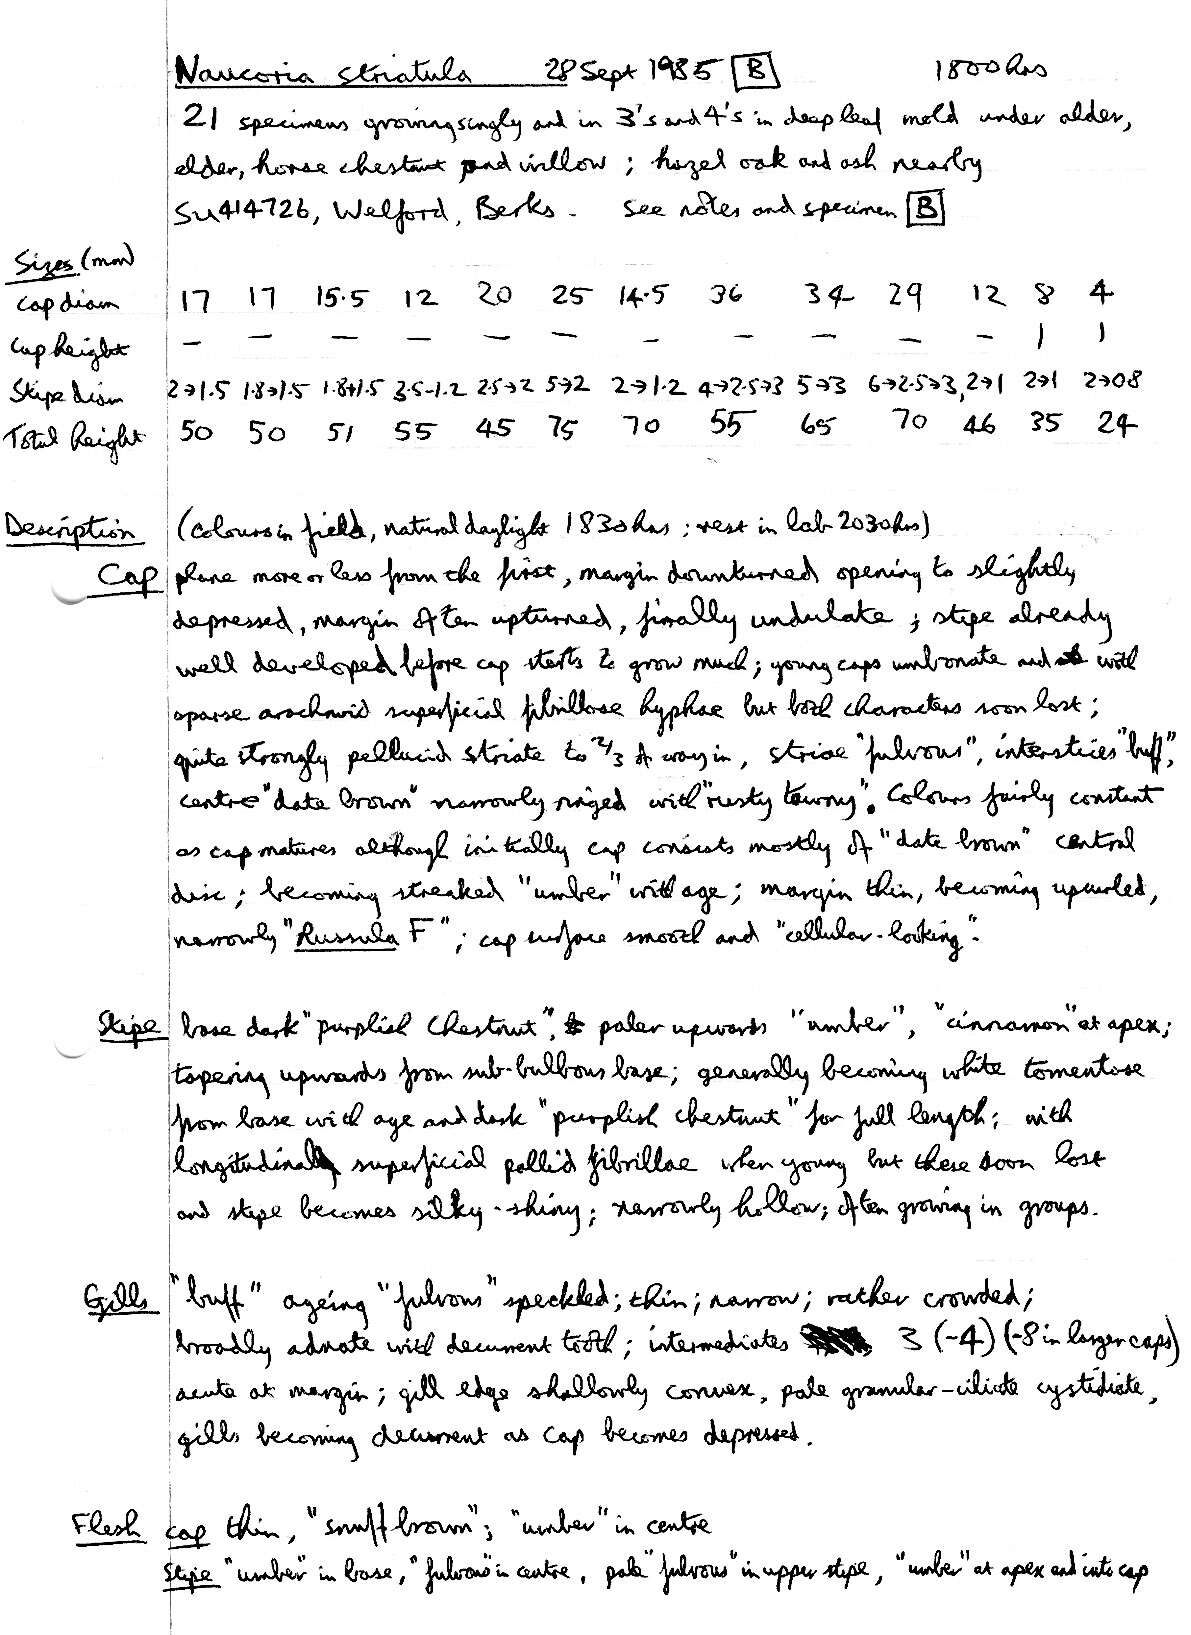 Naucoria striatula 28 Sept 1985 B 1800hrs
21 specimens growing singly and in 3's and 4's in deep leaf mold under alder,
elder, horse chestnut and willow; hazel oak and ash nearby
SU414726, Welford, Berks. See notes and specimen B
Sizes (mm)
Cap diam 17 17 15.5 12 20 25 14.5 36 34 29 12 8 4
Cap height - - - - - - - - - - - 1 1
Stipe diam 2→1.5 1.8→1.5 1.8→1.5 3.5-1.2 2.5→2 5→2 2→1.2 4→2.5→3 5→3 6→2.5→3, 2→1 2→1 2→08
Total height 50 50 51 55 45 75 70 55 65 70 46 35 24
Description (colours in field, natural daylight 1830hrs; rest in lab 2030hrs)
Cap plane more or less from the first, margin downturned opening to slightly
depressed, margin often upturned, finally undulate; stipe already
well developed before cap starts to grow much; young caps umbonate and with
sparse arachnoid superficial fibrillose hyphae but both characters soon lost;
quite strongly pellucid striate to 2/3 of way in, striae "fulvous", interstices "buff",
centre "date brown" narrowly ringed with "rusty tawny". Colours fairly constant
as cap matures although initially cap consists mostly of "date brown" central
disc; becoming streaked "umber" with age; margin thin, becoming upcurled,
narrowly "Russula F"; cap surface smooth and "cellular-looking".
Stipe base dark "purplish chestnut", paler upwards "umber", "cinnamon" at apex;
tapering upwards from sub-bulbous base; generally becoming white tomentose
from base with age and dark "purplish chestnut" for full length; with
longitudinal superficial pallid fibrillae when young but these soon lost
and stipe becomes silky-shiny; narrowly hollow; often growing in groups.
Gills "buff" ageing "fulvous" speckled; thin; narrow; rather crowded;
broadly adnate with decurrent tooth; intermediates 3 (-4) (-8 in larger caps)
acute at margin; gill edge shallowly convex, pale granular-ciliate cystidiate,
gills becoming decurrent as cap becomes depressed.
Flesh cap thin, "snuff brown"; "umber" in centre
Stipe "umber" in base, "fulvous" in centre, pale "fulvous" in upper stipe, "umber" at apex and into cap